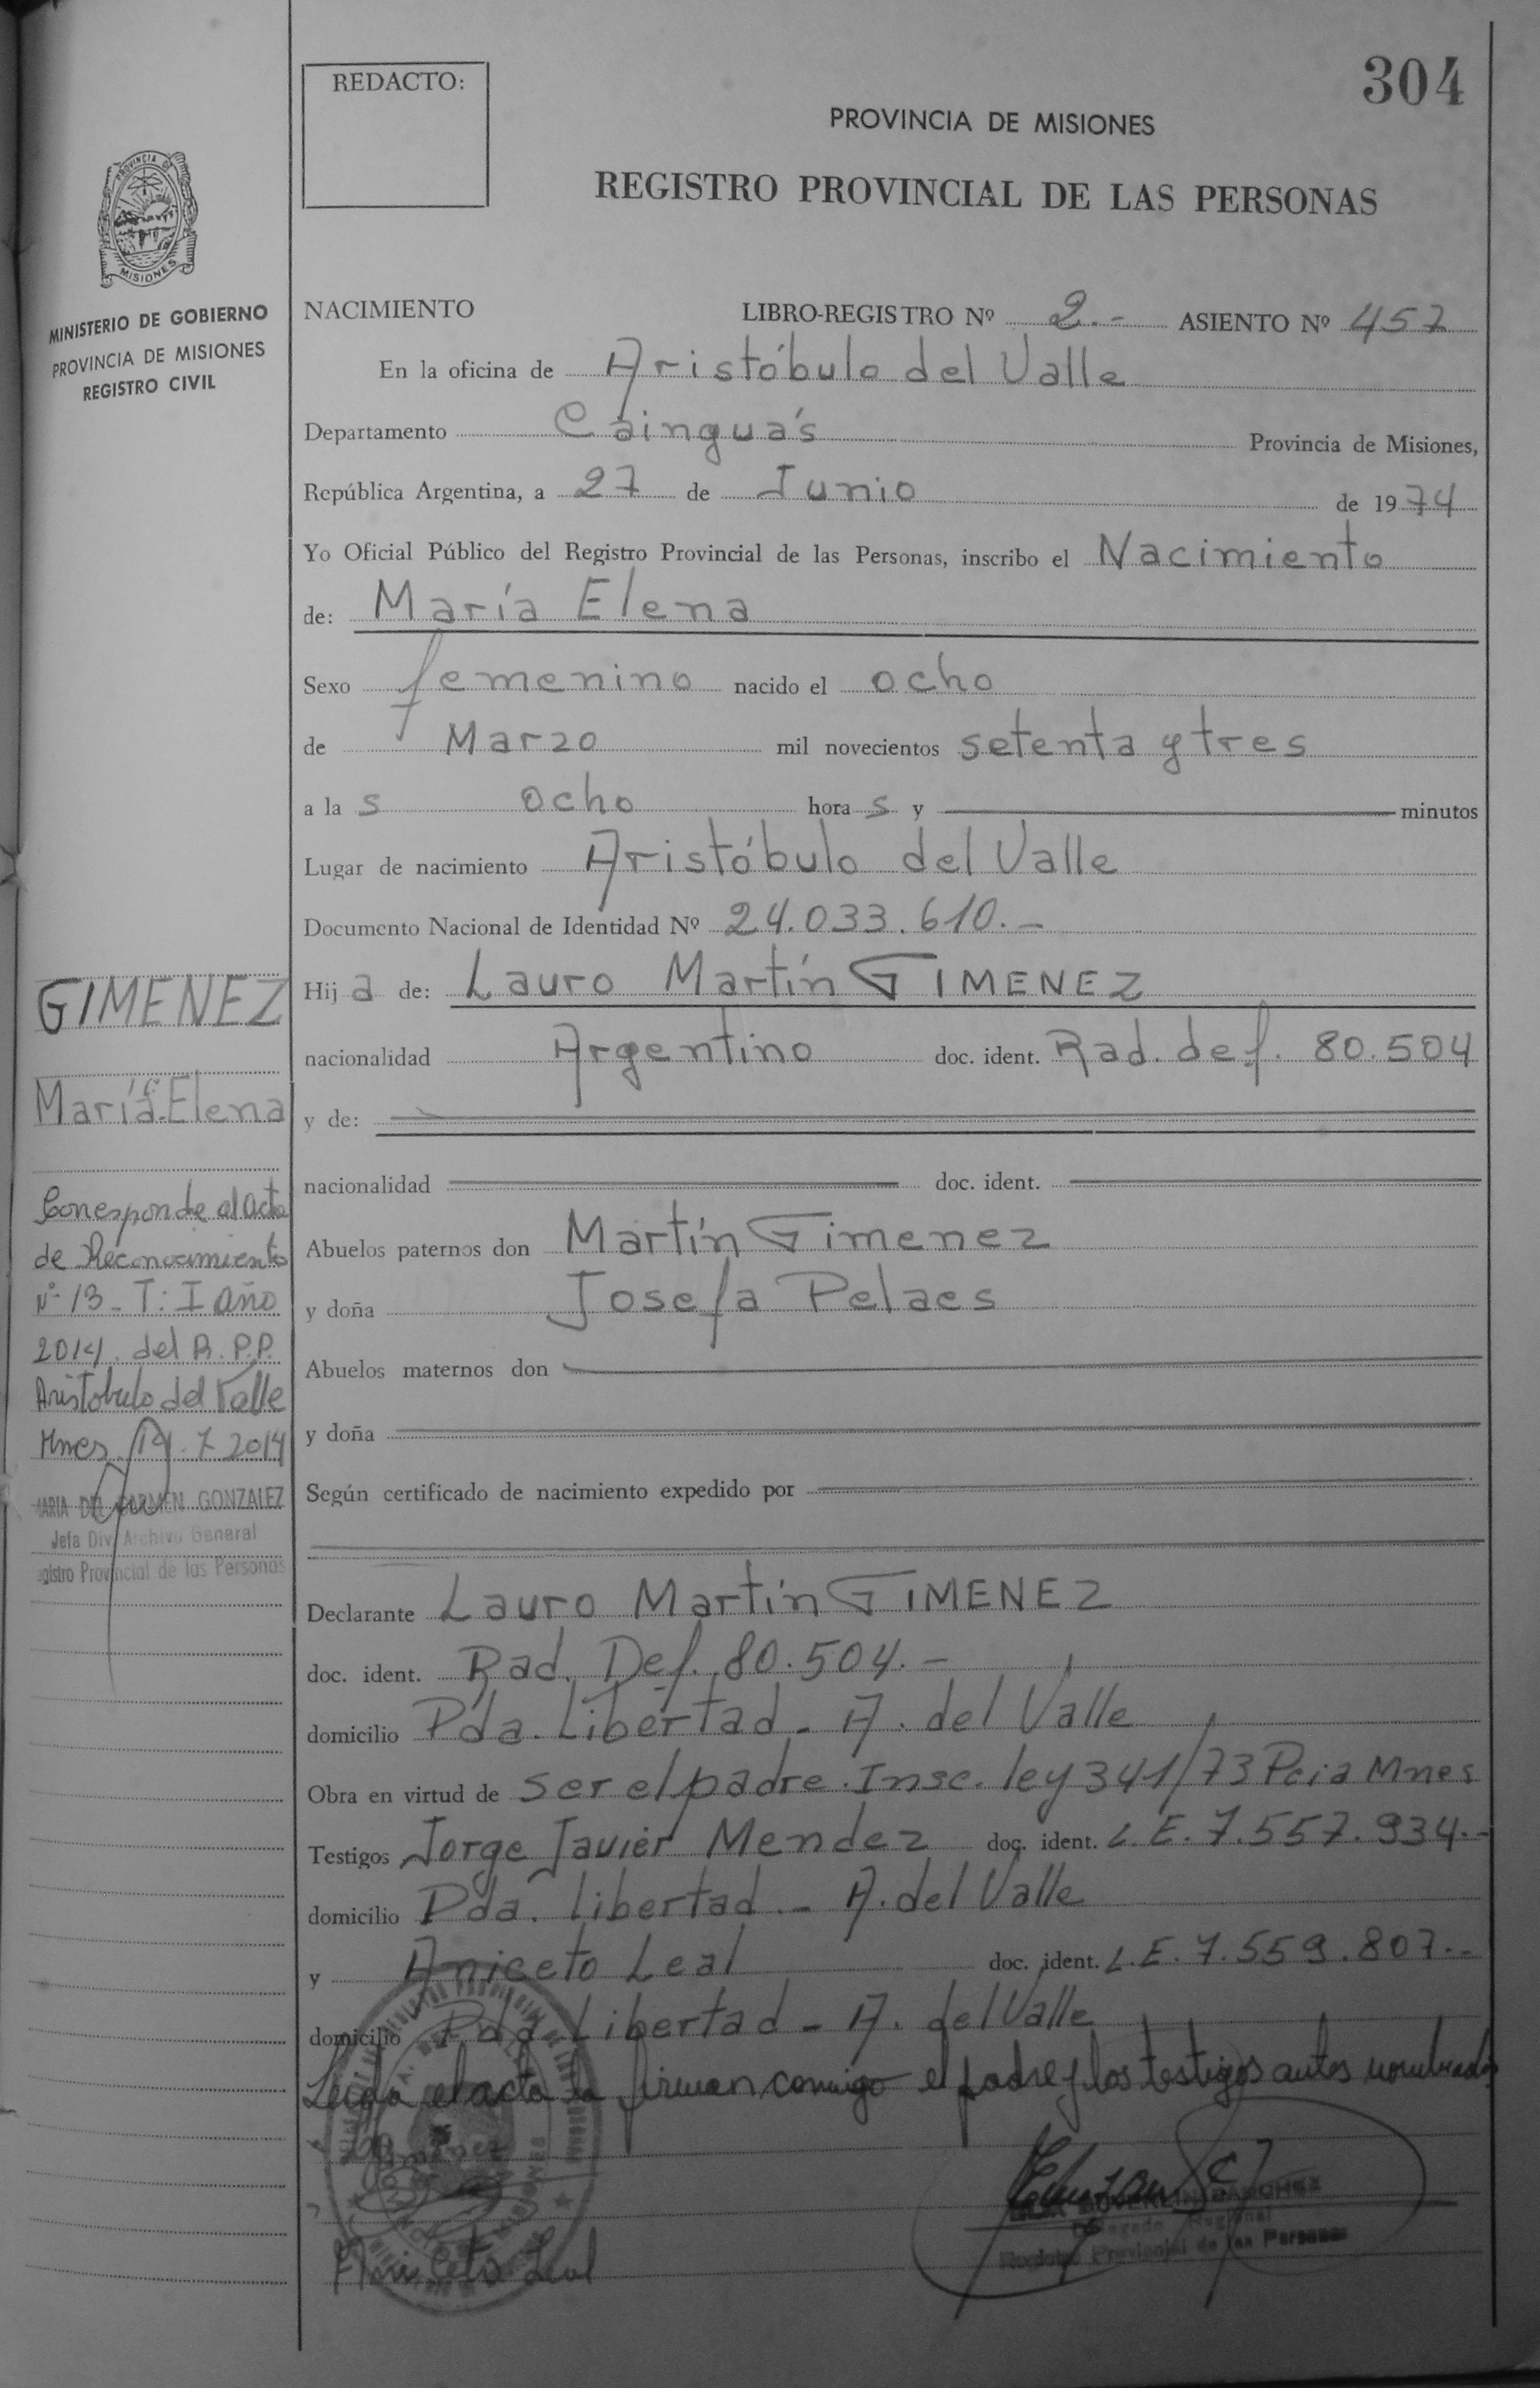 304
REDACTO:
PROVINCIA DE MISIONES
REGISTRO PROVINCIAL DE LAS PERSONAS
PROVINCIA DE
MISIONES
MINISTERIO DE GOBIERNO
PROVINCIA DE MISIONES
REGISTRO CIVIL
NACIMIENTO LIBRO-REGISTRO Nº 2.- ASIENTO Nº 457
En la oficina de Aristóbulo del Valle
Departamento Cainguás Provincia de Misiones,
República Argentina, a 27 de Junio de 1974
Yo Oficial Público del Registro Provincial de las Personas, inscribo el Nacimiento
de: María Elena
Sexo femenino nacido el ocho
de Marzo mil novecientos setenta y tres
a la s ocho hora s y minutos
Lugar de nacimiento Aristóbulo del Valle
Documento Nacional de Identidad Nº 24.033.610.-
Hij a de: Lauro Martín GIMENEZ
nacionalidad Argentino doc. ident. Rad. def. 80.504
y de:
nacionalidad doc. ident.
Abuelos paternos don Martín Gimenez
y doña Josefa Pelaes
Abuelos maternos don
y doña
Según certificado de nacimiento expedido por
Declarante Lauro Martín GIMENEZ
doc. ident. Rad. Def. 80.504.-
domicilio Pda. Libertad - A. del Valle
Obra en virtud de ser el padre. Insc. ley 341/73 Pcia Mnes
Testigos Jorge Javier Mendez doc. ident. L.E. 7.557.934.-
domicilio Pda. Libertad - A. del Valle
y Aniceto Leal doc. ident. L.E. 7.559.807.-
domicilio Pda. Libertad - A. del Valle
Leída el acta la firman conmigo el padre y los testigos antes nombrados
Gimenez
Aniceto Leal
Delegado Regional
Registro Provincial de las Personas
GIMENEZ
María Elena
Corresponde al acta
de Reconocimiento
Nº 13 - T: I año
2014. del R.P.P.
Aristobulo del Valle
Mnes 14.7.2014
MARIA DEL CARMEN GONZALEZ
Jefa Div. Archivo General
gistro Provincial de las Personas